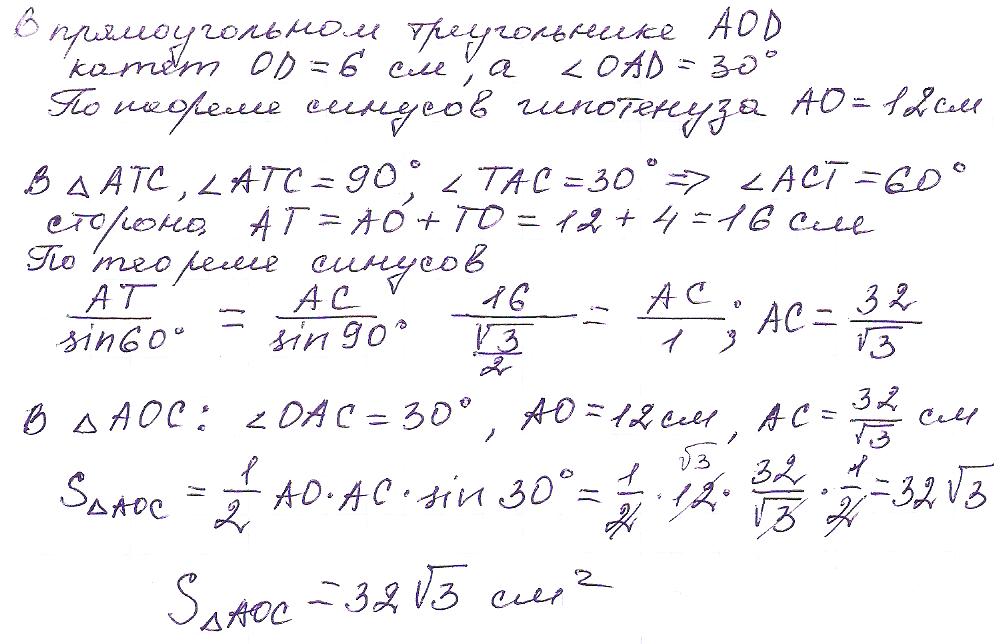 В прямоугольном треугольнике AOD
катет OD = 6 см, а ∠OAD = 30°
По теореме синусов гипотенуза AO = 12 см
В △ATC, ∠ATC = 90°, ∠TAC = 30° ⇒ ∠ACT = 60°
сторона AT = AO + TO = 12 + 4 = 16 см
По теореме синусов
AT/sin60° = AC/sin90° 16/(√3/2) = AC/1; AC = 32/√3
В △AOC: ∠OAC = 30°, AO = 12 см, AC = 32/√3 см
S△AOC = 1/2 AO · AC · sin 30° = 1/2 · 12 √3 · 32/√3 · 1/2 = 32√3
S△AOC = 32√3 см²